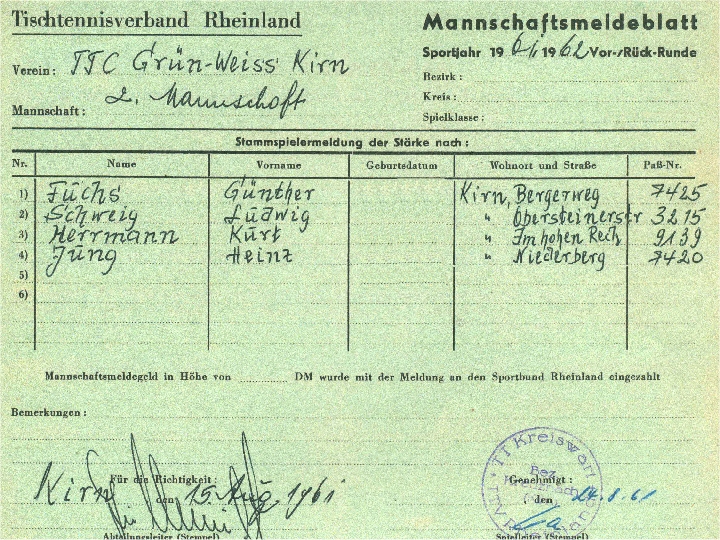 Tischtennisverband Rheinland
Mannschaftsmeldeblatt
Sportjahr 19 61/ 19 62 Vor-/Rück-Runde
Verein: TTC Grün-Weiss Kirn
Bezirk:
Kreis:
Mannschaft: 2. Mannschaft
Spielklasse:
Stammspielermeldung der Stärke nach:
Nr. Name Vorname Geburtsdatum Wohnort und Straße Paß-Nr.
1) Fuchs Günther Kirn, Bergerweg 7425
2) Schweig Ludwig " Obersteinerstr 3215
3) Herrmann Kurt " Im hohen Rech 9139
4) Jung Heinz " Niederberg 7420
5)
6)
Mannschaftsmeldegeld in Höhe von DM wurde mit der Meldung an den Sportbund Rheinland eingezahlt
Bemerkungen:
Für die Richtigkeit: Genehmigt:
Kirn den 15. Aug. 1961 den 24.8.61
Abteilungsleiter (Stempel) Spielleiter (Stempel)
TT Kreiswart
Bez.